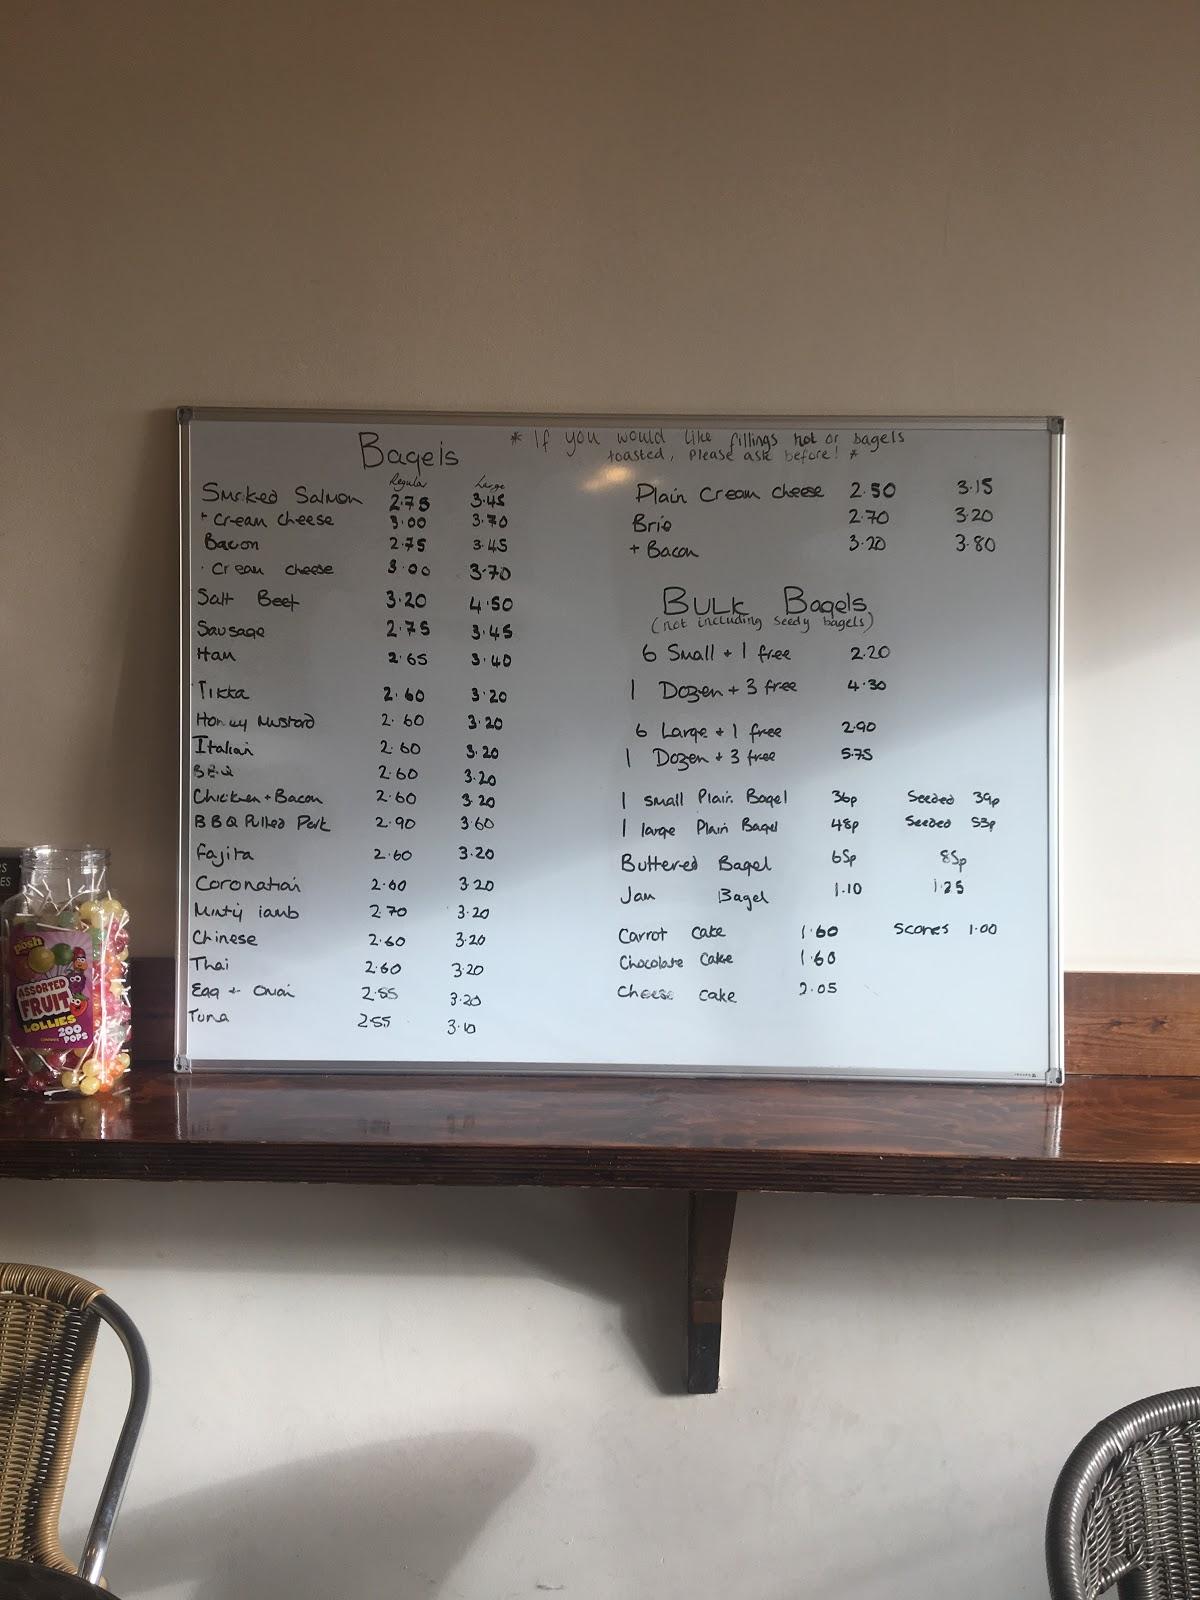 Bagels
* If you would like fillings hot or bagels
toasted, Please ask before! *
Regular Large
Smoked Salmon 2.75 3.45
+ Cream cheese 3.00 3.70
Bacon 2.75 3.45
· Cream cheese 3.00 3.70
Salt Beef 3.20 4.50
Sausage 2.75 3.45
Ham 2.65 3.40
Tikka 2.60 3.20
Honey Mustard 2.60 3.20
Italian 2.60 3.20
BBQ 2.60 3.20
Chicken + Bacon 2.60 3.20
BBQ Pulled Pork 2.90 3.60
Fajita 2.60 3.20
Coronation 2.60 3.20
Minty lamb 2.70 3.20
Chinese 2.60 3.20
Thai 2.60 3.20
Egg + Onion 2.55 3.20
Tuna 2.55 3.10
Plain Cream cheese 2.50 3.15
Brie 2.70 3.20
+ Bacon 3.20 3.80
BULK Bagels
(not including seedy bagels)
6 Small + 1 free 2.20
1 Dozen + 3 free 4.30
6 Large + 1 free 2.90
1 Dozen + 3 free 5.75
1 small Plain Bagel 36p Seeded 39p
1 large Plain Bagel 48p Seeded 53p
Buttered Bagel 65p 85p
Jam Bagel 1.10 1.25
Carrot cake 1.60 Scones 1.00
Chocolate cake 1.60
Cheese cake 2.05
posh
ASSORTED
FRUIT
LOLLIES
200
POPS